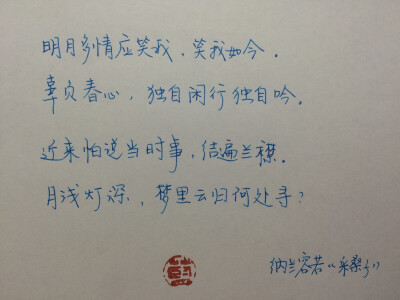 明月多情应笑我，笑我如今。
辜负春心，独自闲行独自吟。
近来怕说当时事，结遍兰襟。
月浅灯深，梦里云归何处寻？
纳兰容若《采桑子》